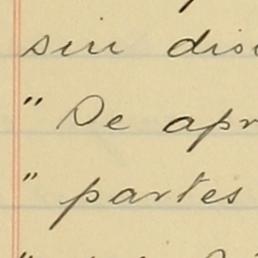 sin dis
" De apr
" partes